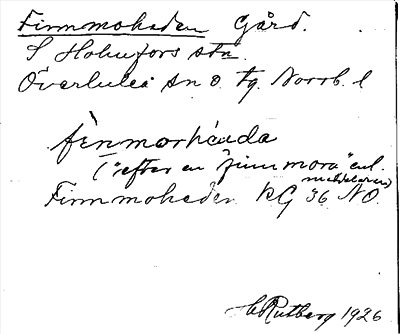 Finnmoheden Gård.
S Holmfors stn.
Överluleå sn o. tg. Norrb. l
finmorhéada
("efter en finnmora" enl.
meddelaren)
Finnmoheden RG 36 NO.
C Rutberg 1926